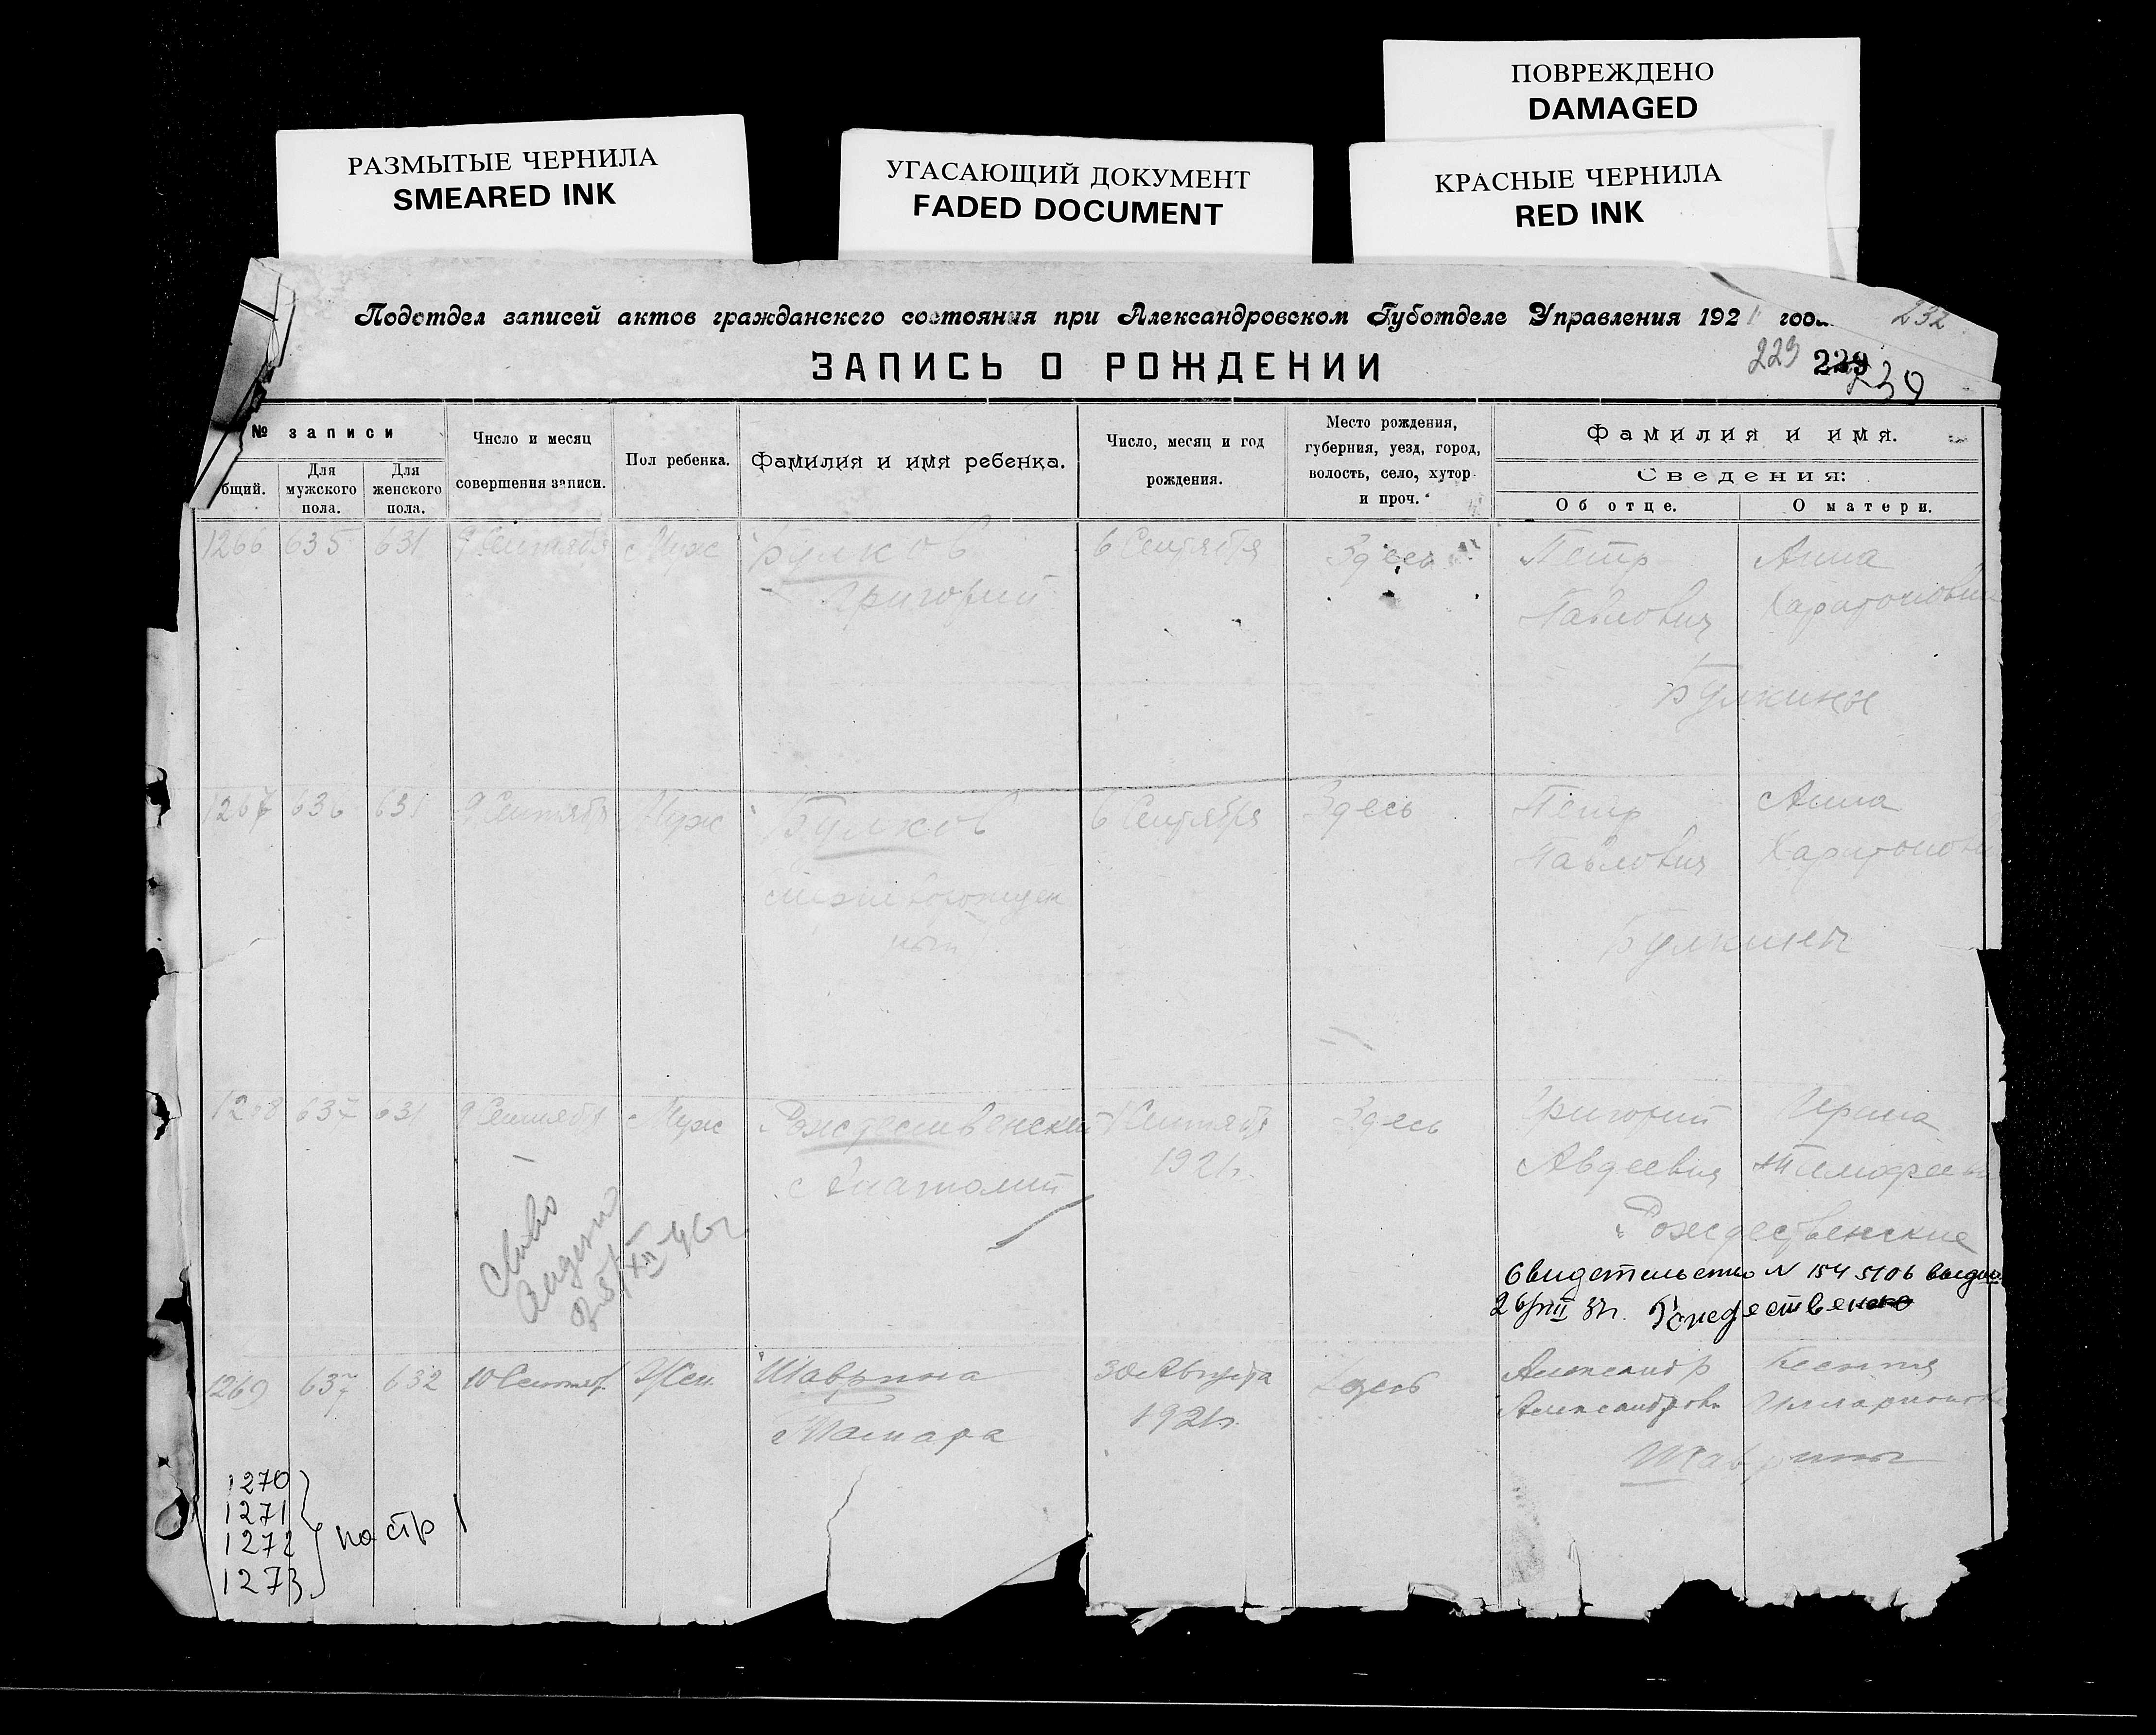 ПОВРЕЖДЕНО
DAMAGED
РАЗМЫТЫЕ ЧЕРНИЛА
SMEARED INK
УГАСАЮЩИЙ ДОКУМЕНТ
FADED DOCUMENT
КРАСНЫЕ ЧЕРНИЛА
RED INK
Подотдел записей актов гражданского состояния при Александровском Губотделе Управления 1921 года
232
ЗАПИСЬ О РОЖДЕНИИ
223 229 230
№ записи
бщий.
Для мужского пола.
Для женского пола.
Число и месяц
совершения записи.
Пол ребенка.
Фамилия и имя ребенка.
Число, месяц и год
рождения.
Место рождения,
губерния, уезд, город,
волость, село, хутор
и проч.
Фамилия и имя.
Сведения:
Об отце.
О матери.
1266 635 631 9 Сентября Муж Булков 6 Сентября Здесь Петр Анна
Григорий Павлович
Булкины
1267 636 631 9 Сентября Муж Булков 6 Сентября Здесь Петр Анна
Павлович
мертворожден
ный
Булкины
1268 637 631 9 Сентября Муж Рождественский Сентября Здесь Григорий Ирина
1921г. Авдеевич
Анатолий
Рождественские
Свидетельство N выдано
Рождествено
1269 637 632 10 Сентяб. Жен. Шаврина 30 Августа Здесь Александр Ксения
1921г. Александрович
Тамара
Шаврины
1270
1271
1272 на стр 1
1273